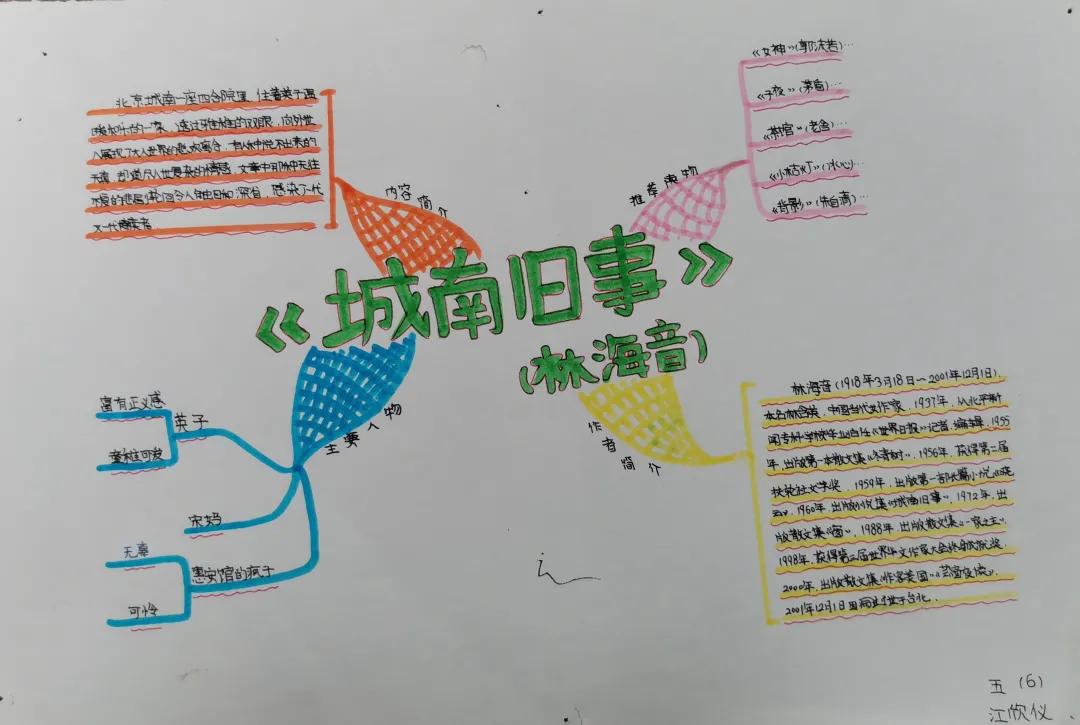 《城南旧事》
(林海音)
内容简介
北京城南一座四合院里,住着英子温
暖和乐的一家,透过英子的双眼,向外世
人展现了大人世界的悲欢离合,有说不出来的
天真,却道尽人世复杂的情感,文章中
不复的悲 令人 深省,感染了一代
又一代读者.
推荐读物
《女神》(郭沫若)…
《子夜》(茅盾)…
《茶官》(老舍)…
《小桔灯》(冰心)…
《背影》(朱自清)…
主要人物
英子
富有正义感
童稚可爱
宋妈
惠安馆的疯子
无辜
可怜
作者简介
林海音(1918年3月18日~2001年12月1日),
本名林含英,中国当代女作家,1937年,从北平新
闻专科学校毕业出任《世界日报》记者、编辑,1955
年,出版第一本散文集《冬青树》,1956年,获得第二届
扶轮社文学奖,1959年,出版第一部长篇小说《晓
云》,1960年,出版小说集《城南旧事》,1972年,出
版散文集《窗》,1988年,出版散文集《一家之主》,
1998年,获得第三届世界华文作家大会终身成就奖,
2000年,出版散文集《作客美国》《芸窗夜读》,
2001年12月1日因病逝世于台北.
五(6)
江欣仪